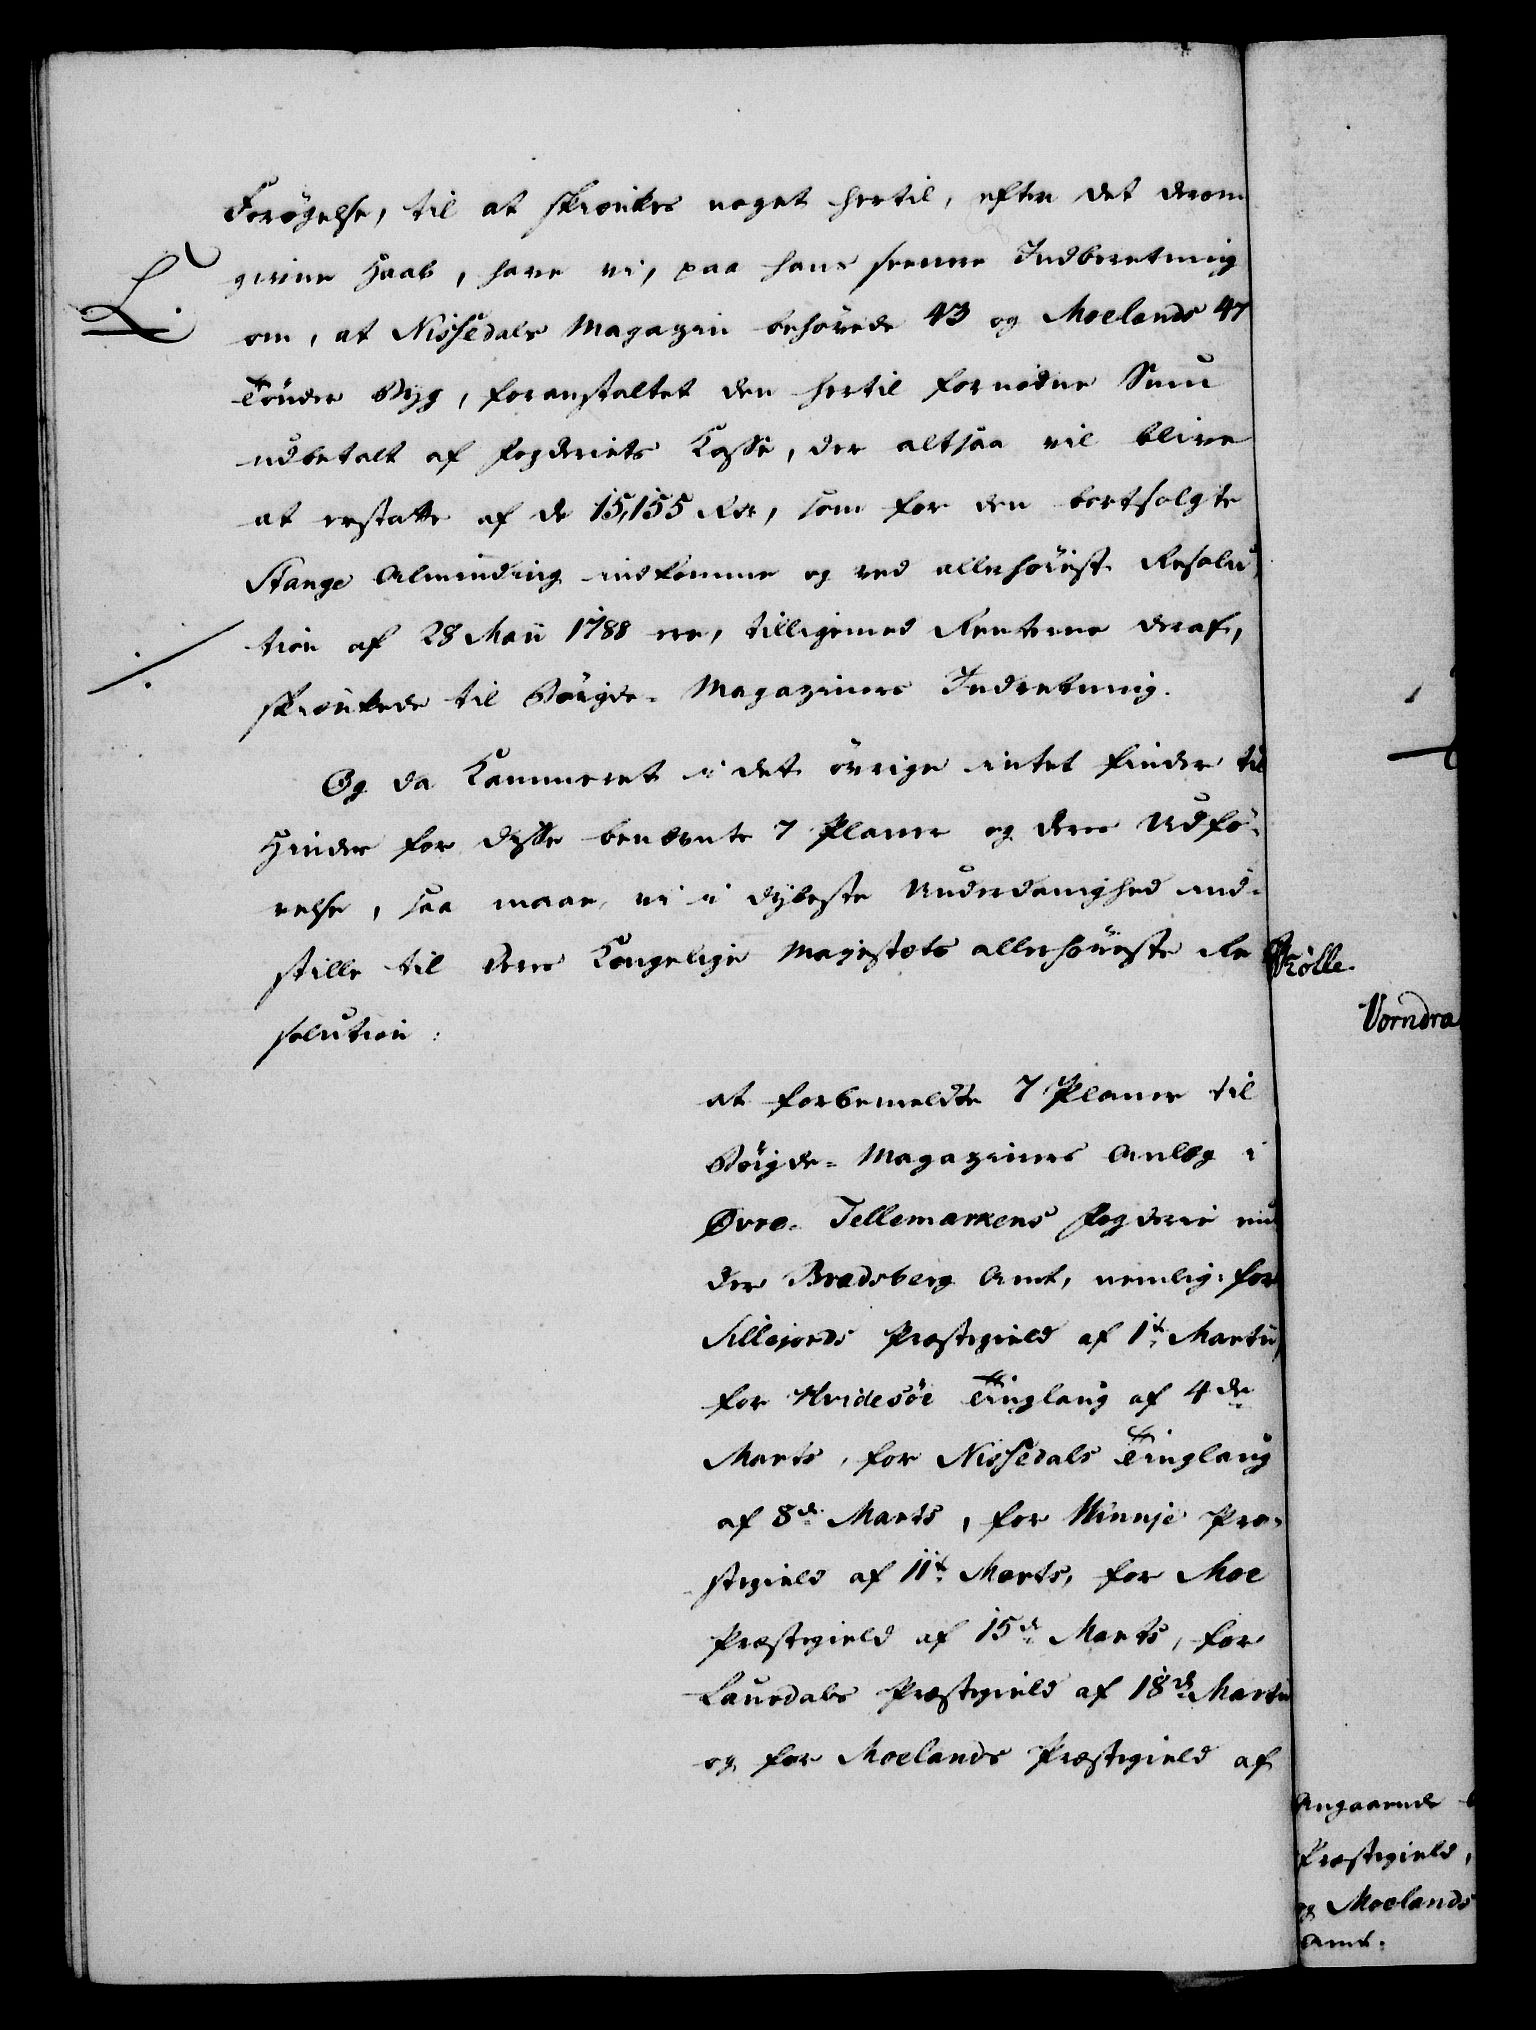 Forøgelse, til at skienkes noget hertil, efter det derom
givne Haab, have vi, paa hans senere Indberetning
L.
om, at Nissedals Magazin behøvede 43 og Moelands 47
Tønder Byg, foranstaltet den hertil fornødne Sum
udbetalt af Fogderiets Casse, der altsaa vil blive
at erstatte af de 15,155 Rdr, som for den bortsolgte
Stange Alminding indkomme og ved allerhøieste Resolu-
./.
tion af 28 Maii 1788 ere, tilligemed Renterne deraf,
skienkede til Bøigde-Magaziners Indretning.
Og da Kammeret i det øvrige intet finder til
Hinder for disse benævnte 7 Planer og deres Udfø-
relse, saa maae vi i dybeste Underdanighed ind-
stille til Deres Kongelige Majestæts allerhøieste Re
solution:
at forbemeldte 7 Planer til
Bøigde-Magaziners Anlæg i
Øvre-Tellemarkens Fogderie un
der Bradsberg Amt, nemlig: for
Sillejords Præstegield af 1t. Martii,
for Hvidesøe Tinglaug af 4de
Marts, for Nissedals Tinglaug
af 8de Marts, for Winnje Præ-
stegield af 11t. Marts, for Moe
Præstegield af 15de Marts, for
Laurdals Præstegield af 18de Martii
og for Moelands Præstegield af
Trölle
Vorndra
Angaaende
Præstegield,
og Moelands
Amt.